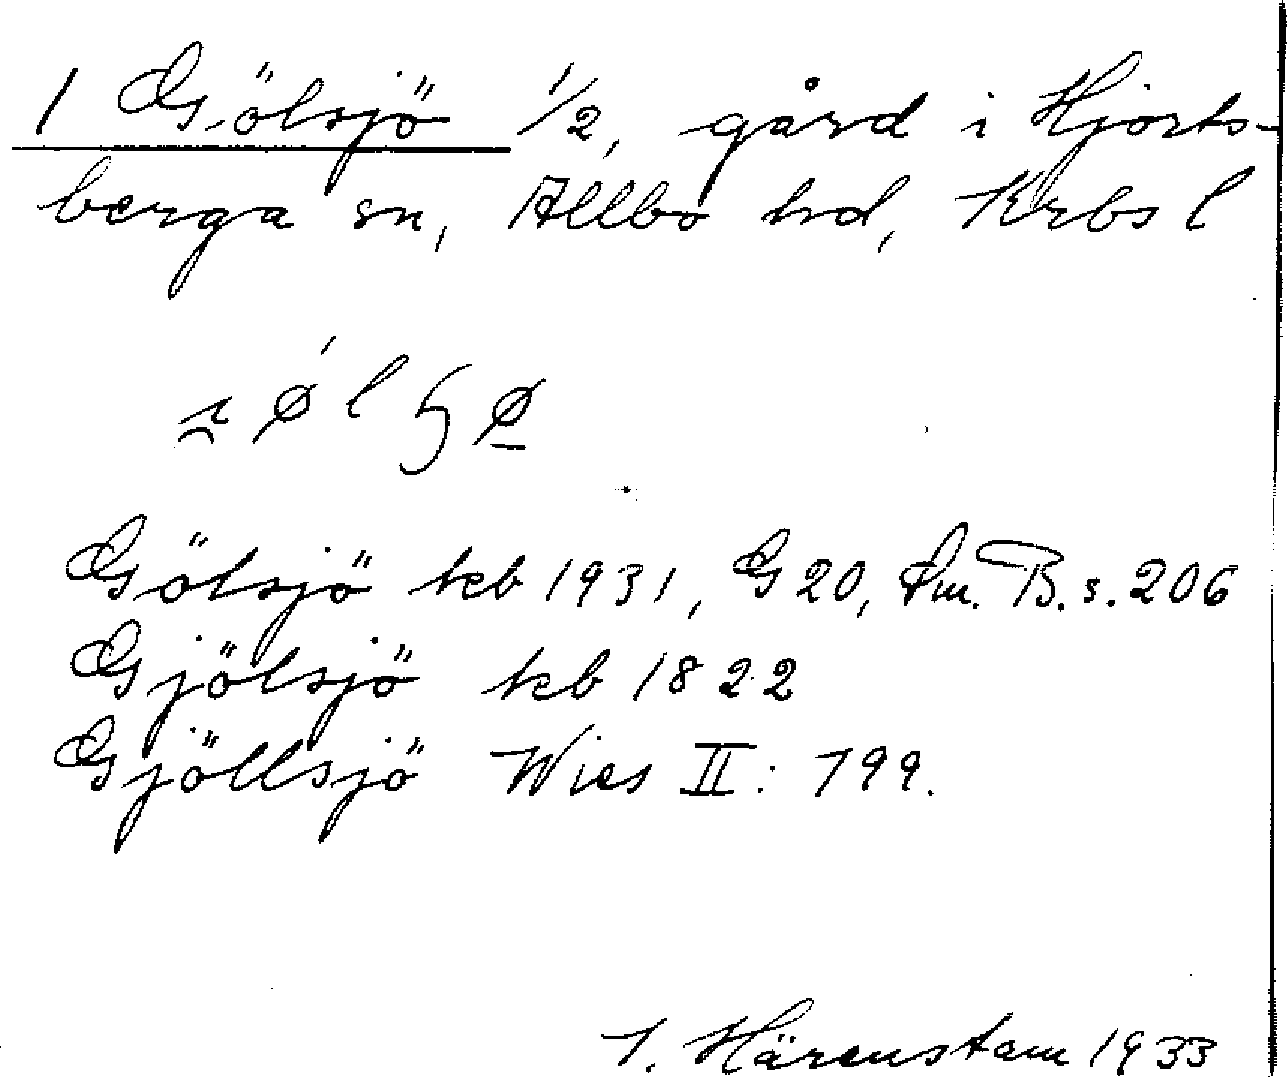 1 Gölsjö 1/2, gård i Hjorts-
berga sn, Allbo hd, Krbs l
Gölsjö kb 1931, G 20, Sm. B. s. 206
Gjölsjö kb 1822
Gjöllsjö Wies II: 199.
I. Härenstam 1933